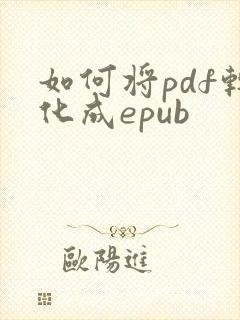 如何将pdf转
化成epub
歐陽進